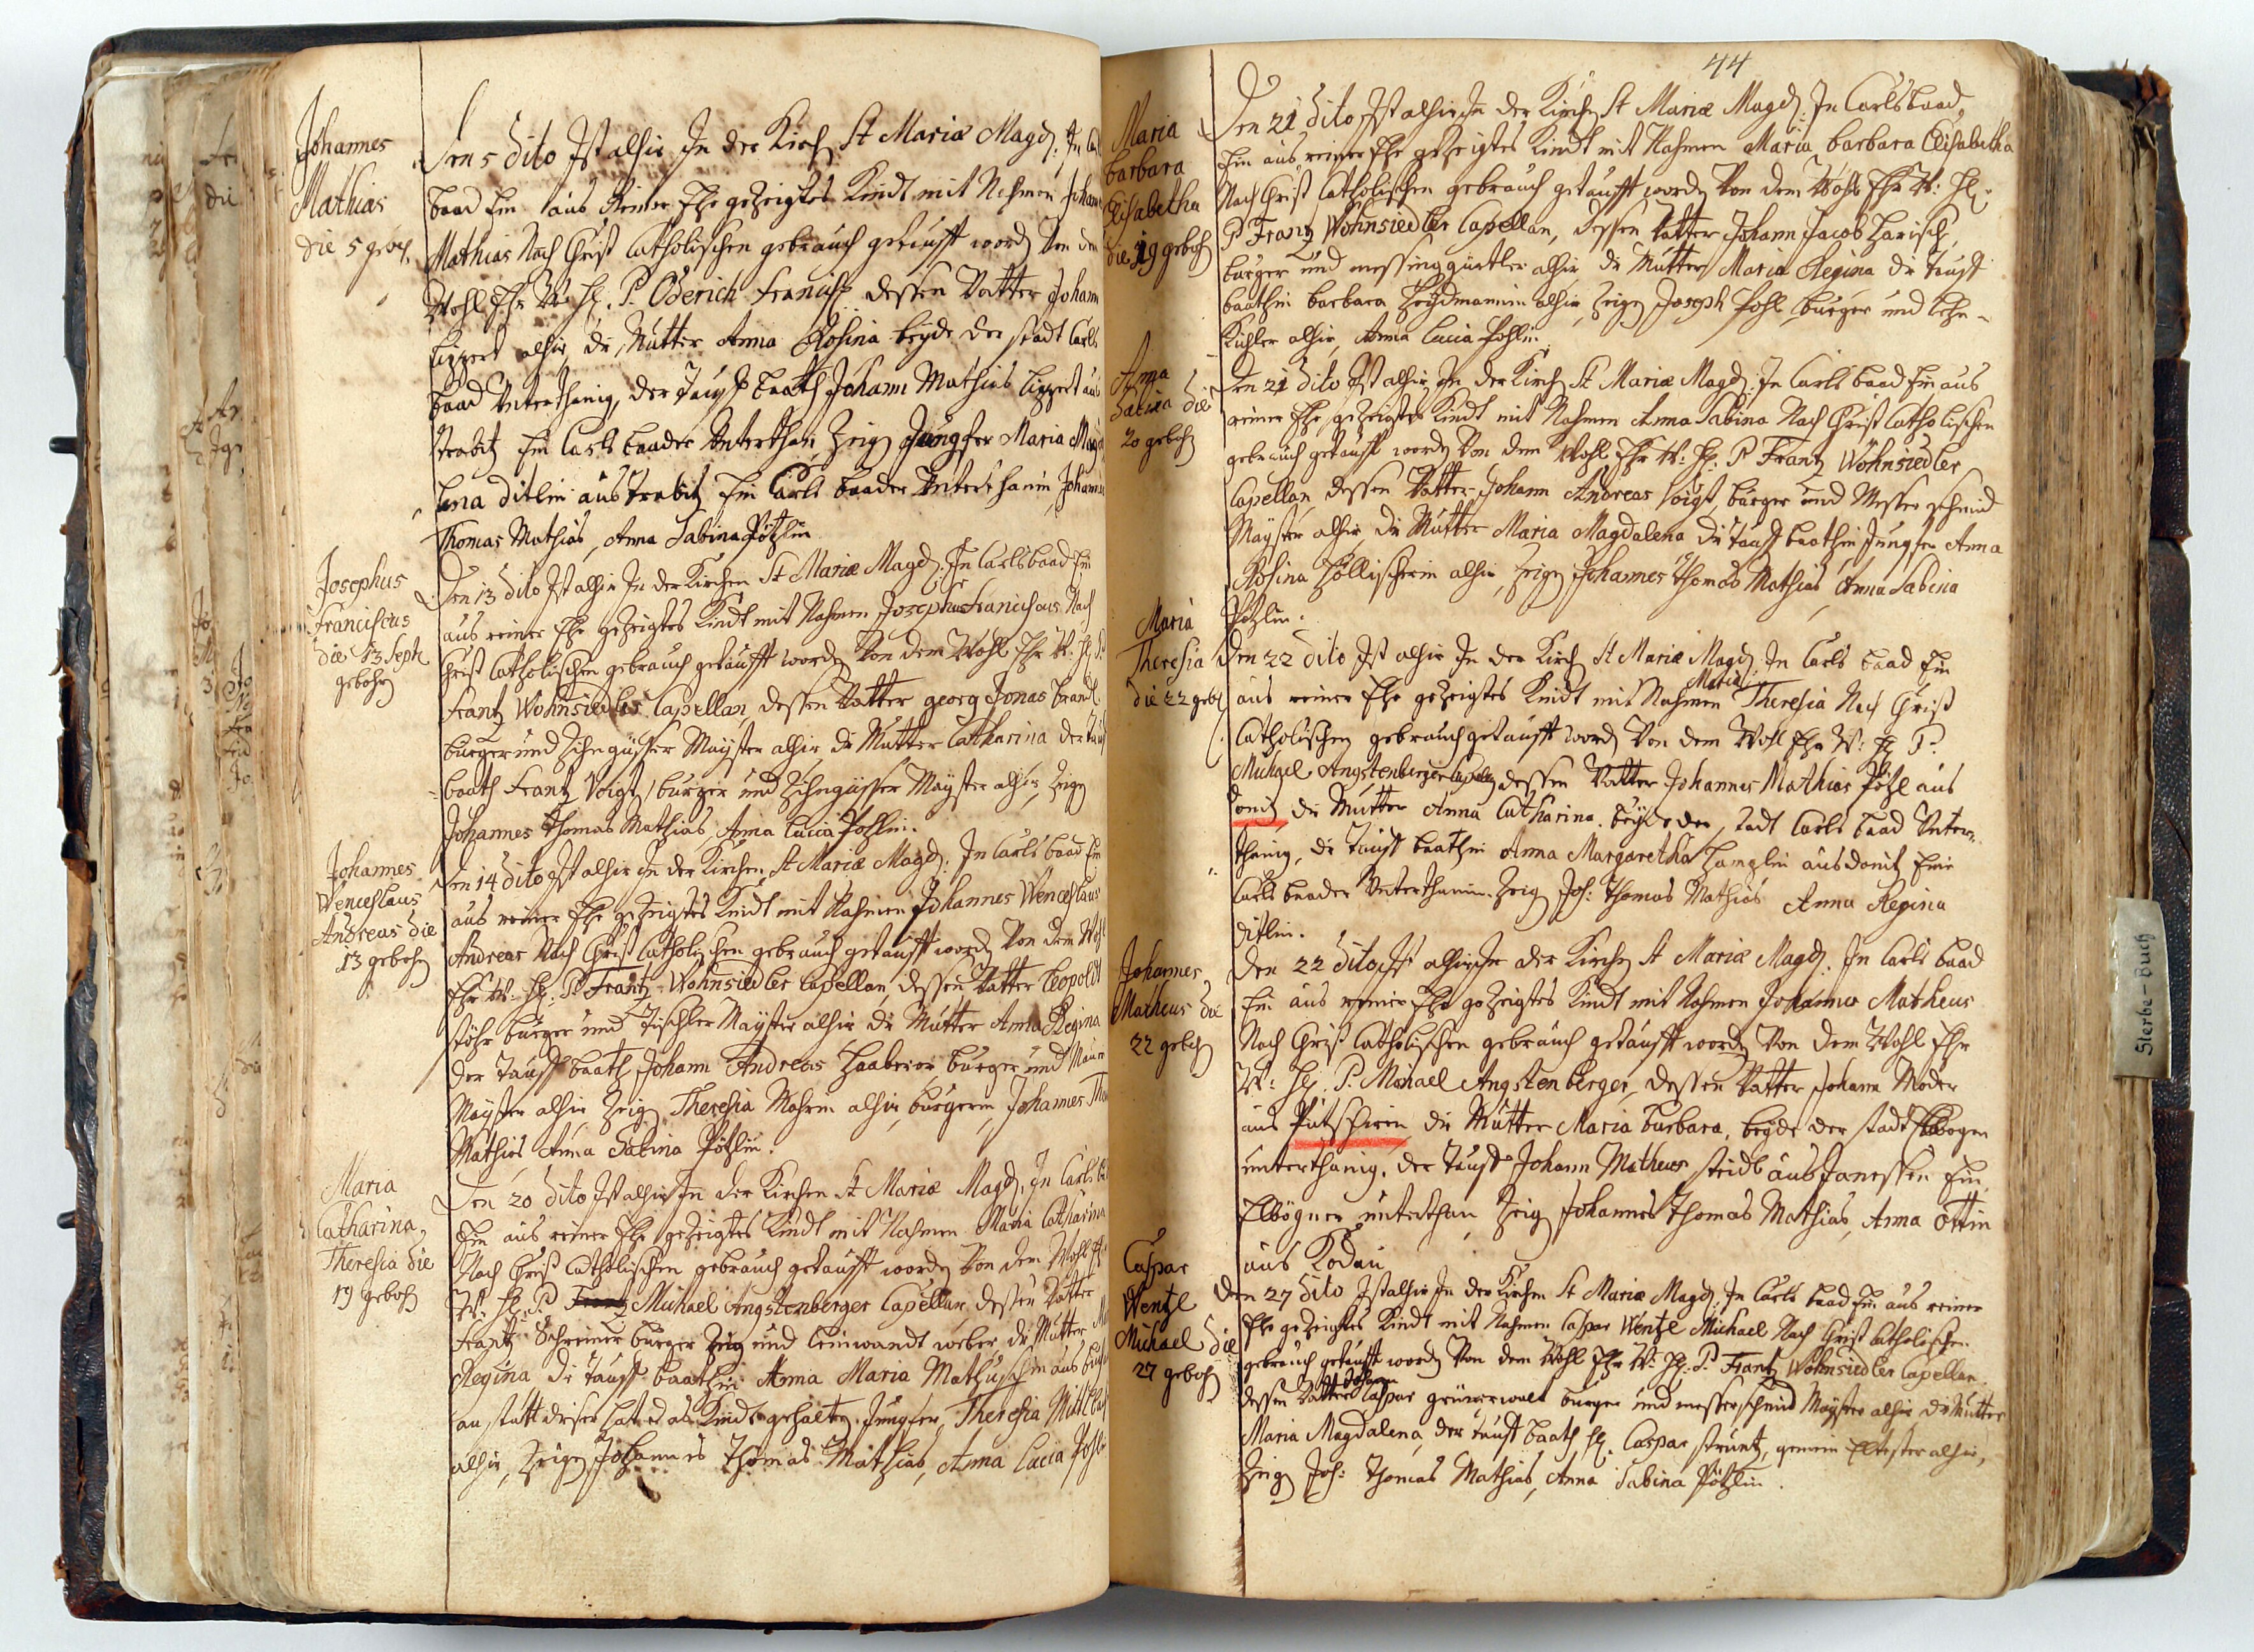 Johannes
Mathias
die 5 geboh.
Den 5 dito Ist alhir In der Kirch St Mariæ Magd: In Carls
baad Ein aus Reiner Ehe gezeigtes Kindt mit Nahmen Johann
Mathias Nach Christ Catholischen gebrauch getaufft word Von dem
Wohl Ehr W: H: P. Oderich Francisc dessen Vatter Johann
Lippert alhir, die Mutter Anna Rosina beyde der stadt Carls
baad Unterthanig, der Tauff baath Johann Mathias Lippert aus
Trabitz Ein Carls baader Unterthan, Zeig Jungfer Maria Magda
lena ditlin aus Trabitz Ein Carls baader Unterthanin, Johannes
Thomas Mathias, Anna Sabina Pötzlin
Josephus
Franciscus
die 13 Sept
gebohrn
Den 13 dito Ist alhir In der Kirchen St Mariæ Magd: In Carlsbaad Ein
aus reiner Ehe gezeigtes Kindt mit Nahmen Josephus Franciscus Nach
Christ Catholischen gebrauch getaufft word Von dem Wohl Ehr W: H: P
Frantz Wohnsiedler Capellan, dessen Vatter georg Jonas
burger und Zihngüsser Mayster alhir, die Mutter Catharina der Tauff
baath Frantz Voigt, burger und Zihngüsser Mayster alhir, Zeign
Johannes Thomas Mathias, Anna Lucia Pohlin.
Johannes
Wenceslaus
Andreas die
13 gebohrn
Den 14 dito Ist alhir In der Kirchen St Mariæ Magd: In Carls baad Ein
aus reiner Ehe gezeigtes Kindt mit Nahmen Johannes Wenceslaus
Andreas Nach Christ Catholischen gebrauch getaufft word Von dem Wohl
Ehr W: H: P. Frantz Wohnsiedler Capellan, dessen Vatter Leopoldt
Stöhr burger und Tischler Mayster alhir die Mutter Anna Regina
der Tauff baath Johann Andreas Haaberer burger und Maurer
Mayster alhir Zeig Theresia alhir, burgerin, Johannes Tho
Mathias Anna Sabina Pötzlin.
Maria
Catharina
Theresia die
19 gebohrn
Den 20 dito Ist alhir In der Kirchen St Mariæ Magd: In Carls
Ein aus reiner Ehe gezeigtes Kindt mit Nahmen Maria Catharina
Nach Christ Catholischen gebrauch getaufft worden Von dem Wohl
W: H: P. Frantz Michael Angstenberger Capellan dessen Vatter
Frantz Schreiner burger und leinwandt weber, die Mutter
Regina die Tauff baathin Anna Maria aus
an statt dieser hat das Kindt gehalten Jungfer Theresia
alhir, Zeign Johannes Thomas Mathias, Anna Lucia Pohlin
44
Maria
barbara
Elisabetha
die 19 gebohrn
Den 21 dito Ist alhir In der Kirchen St Mariæ Magd: In Carlsbaad
Ein aus reiner Ehe gezeigtes Kindt mit Nahmen Maria barbara Elisabetha
Nach Christ Catholischen gebrauch getaufft word Von dem Wohl Ehr W: H:
P Frantz Wohnsiedler Capellan, dessen Vatter Johann Jacob Harisch,
burger und messinggürtler alhir, die Mutter Maria Regina die Tauff
baathin barbara alhir, Zeign Joseph Pohl, burger und
alhir, Anna Lucia Pohlin.
Anna
Sabina die
20 gebohrn
Den 21 dito Ist alhir In der Kirch St Mariæ Magd: In Carls baad Ein aus
reiner Ehe gezeigtes Kindt mit Nahmen Anna Sabina Nach Christ Catholischen
gebrauch getaufft word Von dem Wohl Ehr W: H: P Frantz Wohnsiedler
Capellan, dessen Vatter Johann Andreas Voigt, burger und Messer schmid
Mayster alhir, die Mutter Maria Magdalena die Tauff baathin Jungfer Anna
Rosina alhir, Zeign Johannes Thomas Mathias, Anna Sabina
Pötzlin.
Maria
Theresia
die 22 geboh
Den 22 dito Ist alhir In der Kirch St Mariæ Magd: In Carls baad Ein
aus reiner Ehe gezeigtes Kindt mit Nahmen Maria Theresia Nach Christ
Catholischen gebrauch getaufft word Von dem Wohl Ehr W: H: P.
Michael Angstenberger Capellan dessen Vatter Johannes Mathias Pötzl aus
Donitz die Mutter Anna Catharina. beyde der, stadt Carls baad Unter-
thanig, die Tauff baathin Anna Margaretha aus Donitz Eine
Carls baader Unterthanin. Zeig Joh: Thomas Mathias Anna Regina
ditlin.
Johannes
Matheus die
22 gebohrn
Den 22 dito Ist alhir In der Kirchen St Mariæ Magd: In Carls baad
Ein aus reiner Ehe gezeigtes Kindt mit Nahmen Johannes Matheus
Nach Christ Catholischen gebrauch getaufft worden Von dem Wohl Ehr
W: H: P. Michael Angstenberger, dessen Vatter Johann Moder
aus Putschirn, die Mutter Maria barbara, beyde der stadt Elbogen
unterthanig. der Tauff Johann Matheus steidl aus Janessen Ein
Elbogner unterthan, Zeig Johannes Thomas Mathias, Anna ottin
aus Kodau
Caspar
Wentzl
Michael die
27 gebohrn
Den 27 dito Ist alhir In der Kirchen St Mariæ Magd: In Carls baad Ein aus reiner
Ehe gezeigtes Kindt mit Nahmen Caspar Wentzl Michael Nach Christ Catholischen
gebrauch getaufft word Von dem Wohl Ehr W: H: P. Frantz Wohnsiedler Capellan.
dessen Vatter Johann Caspar grünerwalt burger und messerschmid Mayster alhir die Mutter
Maria Magdalena, der Tauff baath H. Caspar struntz, gemein Eltester alhir,
Zeig Joh: Thomas Mathias, Anna Sabina Pötzlin.
Sterbe-Buch